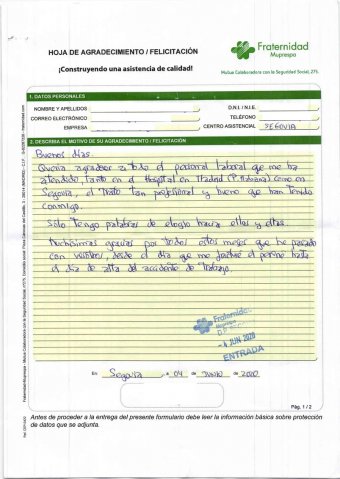 HOJA DE AGRADECIMIENTO / FELICITACIÓN
¡Construyendo una asistencia de calidad!
Fraternidad
Muprespa
Mutua Colaboradora con la Seguridad Social, 275
1. DATOS PERSONALES
NOMBRE Y APELLIDOS
D.N.I. / N.I.E.
CORREO ELECTRÓNICO
TELÉFONO
EMPRESA
CENTRO ASISTENCIAL SEGOVIA
2. DESCRIBA EL MOTIVO DE SU AGRADECIMIENTO / FELICITACIÓN
Buenos días.
Quería agradecer a todo el personal laboral que me ha
atendido, tanto en el Hospital en Madrid (P. Habana) como en
Segovia, el trato tan profesional y bueno que han tenido
conmigo.
Solo tengo palabras de elogio hacia ellos y ellas.
Muchísimas gracias por todos estos meses que he pasado
con vosotros, desde el día que me fracturé el peroné hasta
el día de alta del accidente de trabajo.
Fraternidad
Muprespa
- 4 JUN 2020
ENTRADA
En Segovia, a 04 de Junio de 2020
Pág. 1 / 2
Antes de proceder a la entrega del presente formulario debe leer la información básica sobre protección
de datos que se adjunta.